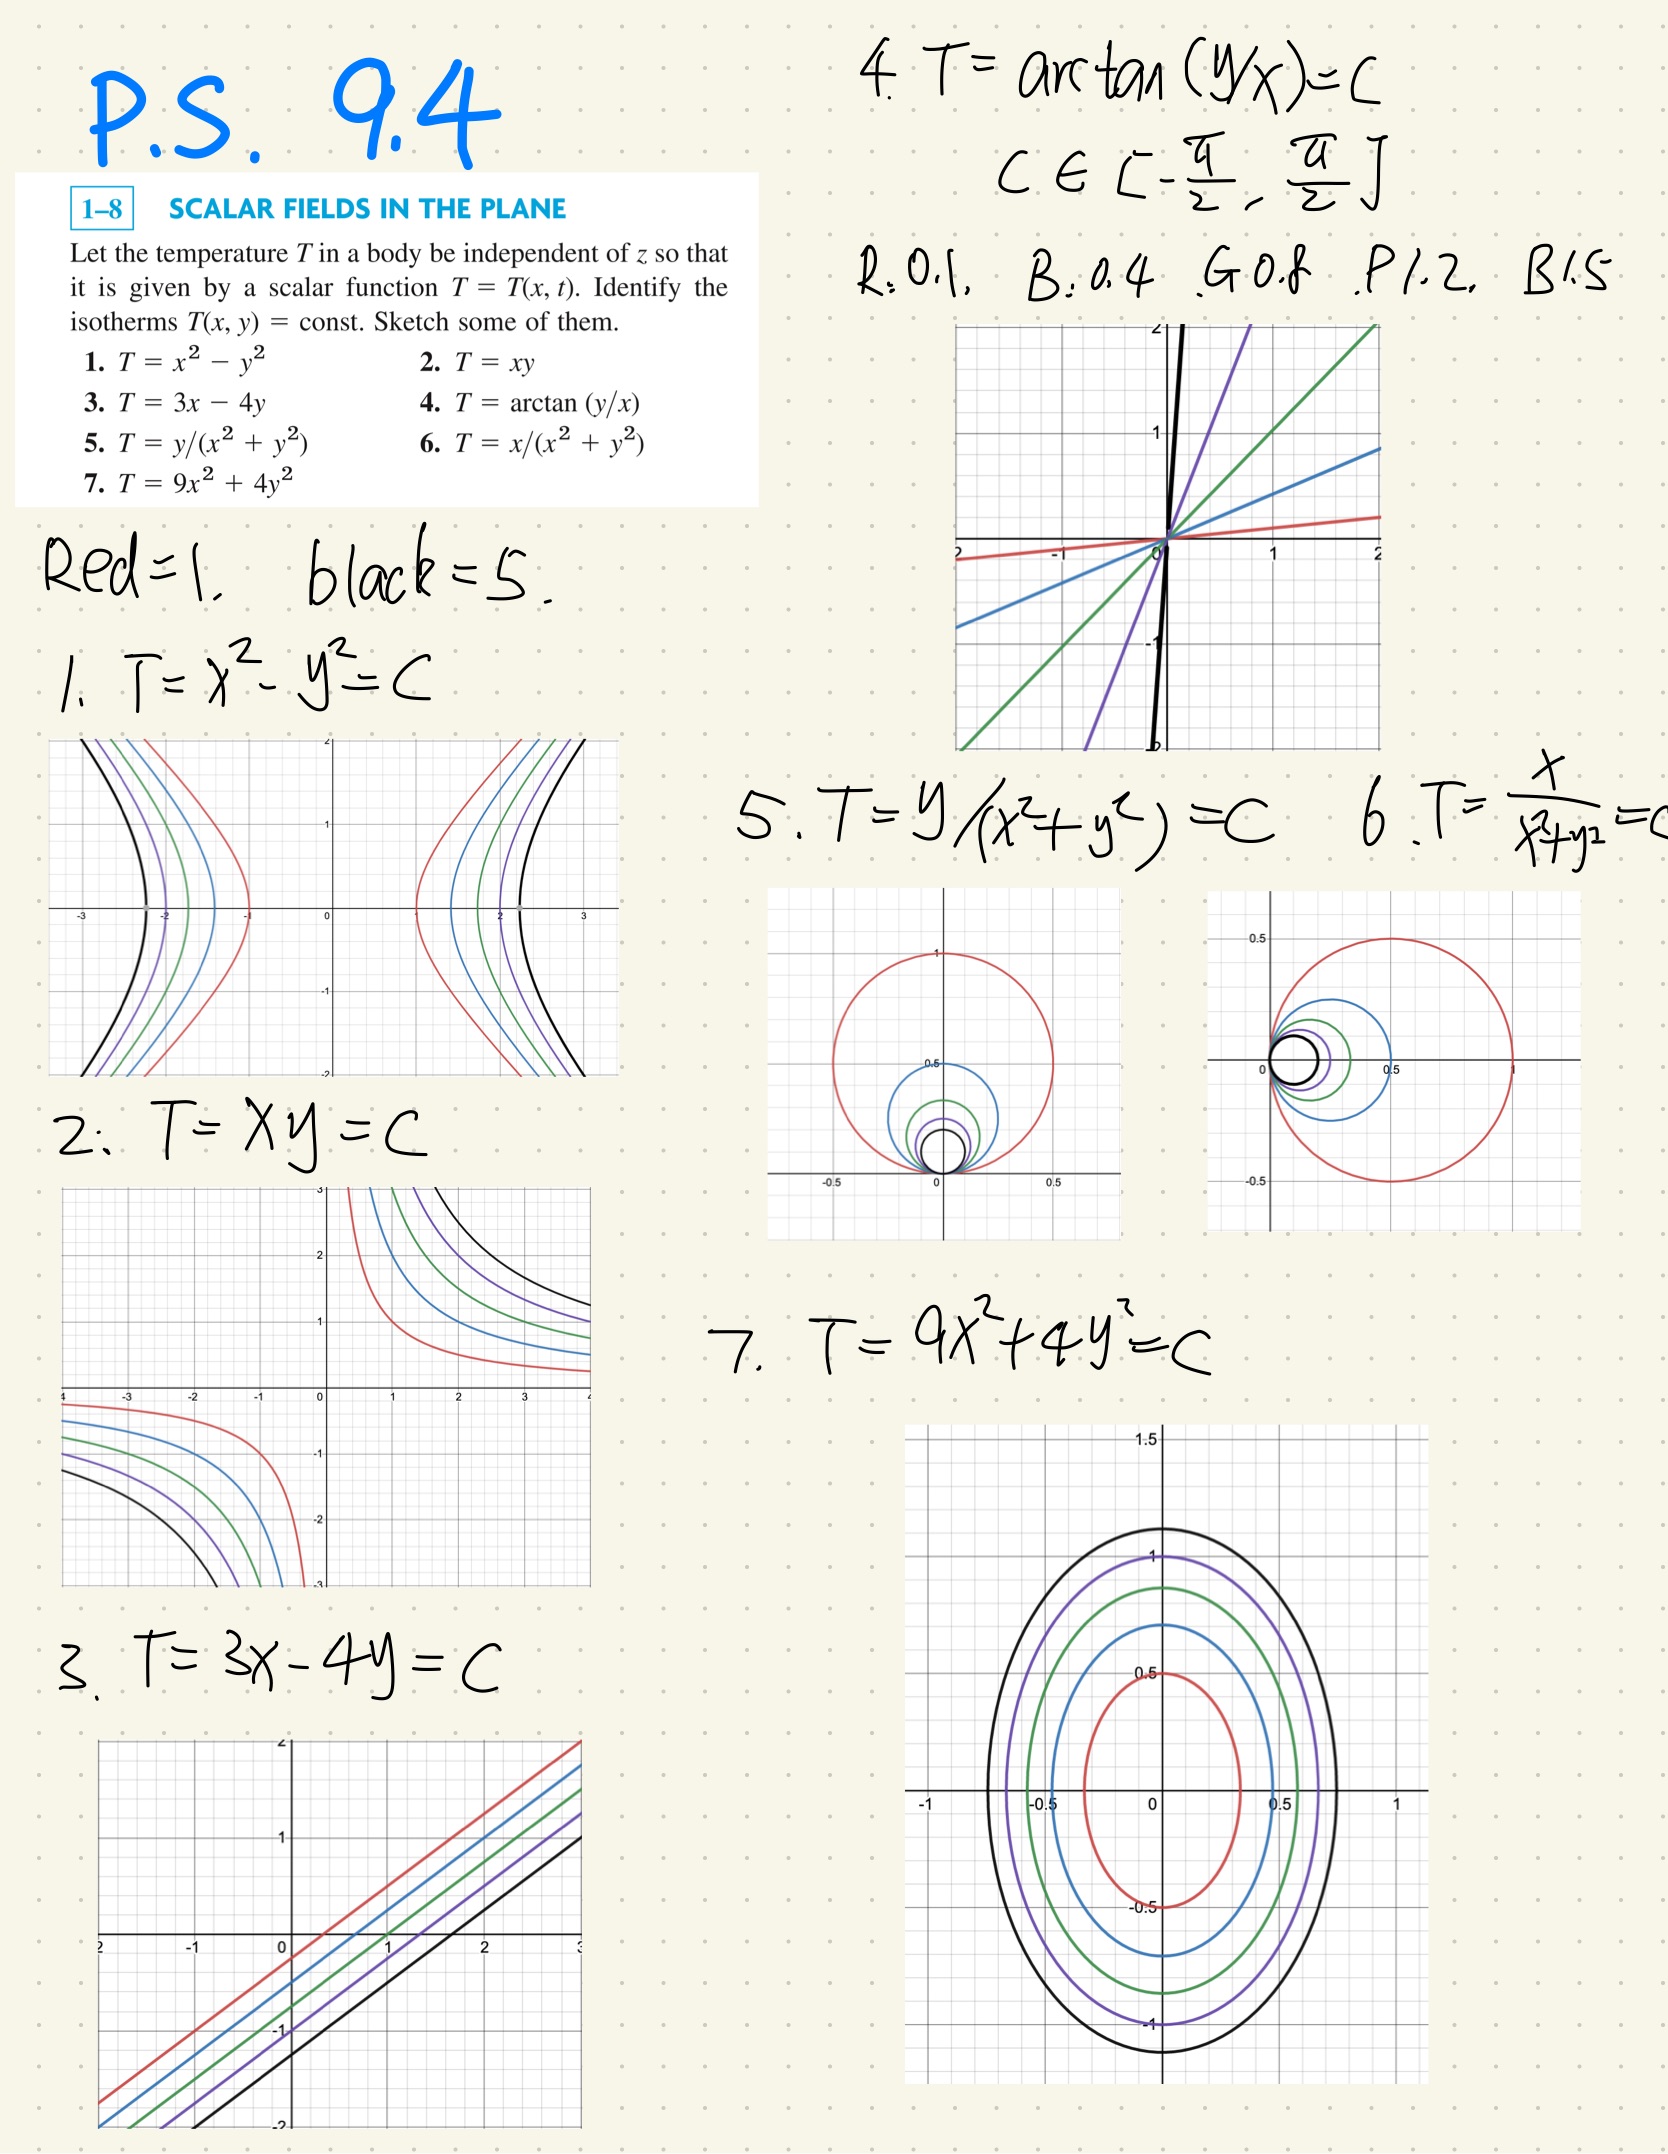 P.S. 9.4
1–8 SCALAR FIELDS IN THE PLANE
Let the temperature T in a body be independent of z so that
it is given by a scalar function T = T(x, t). Identify the
isotherms T(x, y) = const. Sketch some of them.
1. T = x² − y² 2. T = xy
3. T = 3x − 4y 4. T = arctan (y/x)
5. T = y/(x² + y²) 6. T = x/(x² + y²)
7. T = 9x² + 4y²
Red=1. black=5.
1. T= x²- y²=C
2
1
-3 -2 -1 0 2 3
-1
-2
2. T= xy =C
3
2
1
4 -3 -2 -1 0 1 2 3 4
-1
-2
-3
3. T= 3x-4y=C
2
1
2 -1 0 1 2 3
-1
-2
4. T= arctan (y/x)=C
C ∈ [-π/2, π/2]
R:0.1. B:0.4 G0.8 P1.2. B1.5
2
1
2 -1 0 1 2
-1
-2
5. T= y/(x²+y²) =C
1
0.5
-0.5 0 0.5
6. T= x/(x²+y²) =C
0.5
0 0.5 1
-0.5
7. T= 9x²+4y²=C
1.5
1
0.5
-1 -0.5 0 0.5 1
-0.5
-1